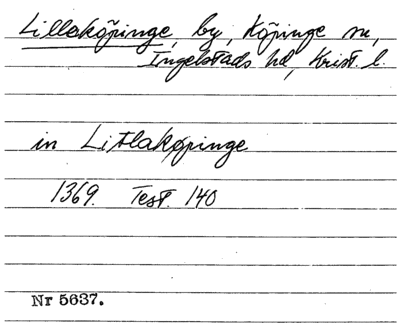 Lillaköpinge, by, Köpinge sn,
Ingelstads hd, Krist. l.
in Litlakøpinge
1369. Test. 140
Nr 5637.